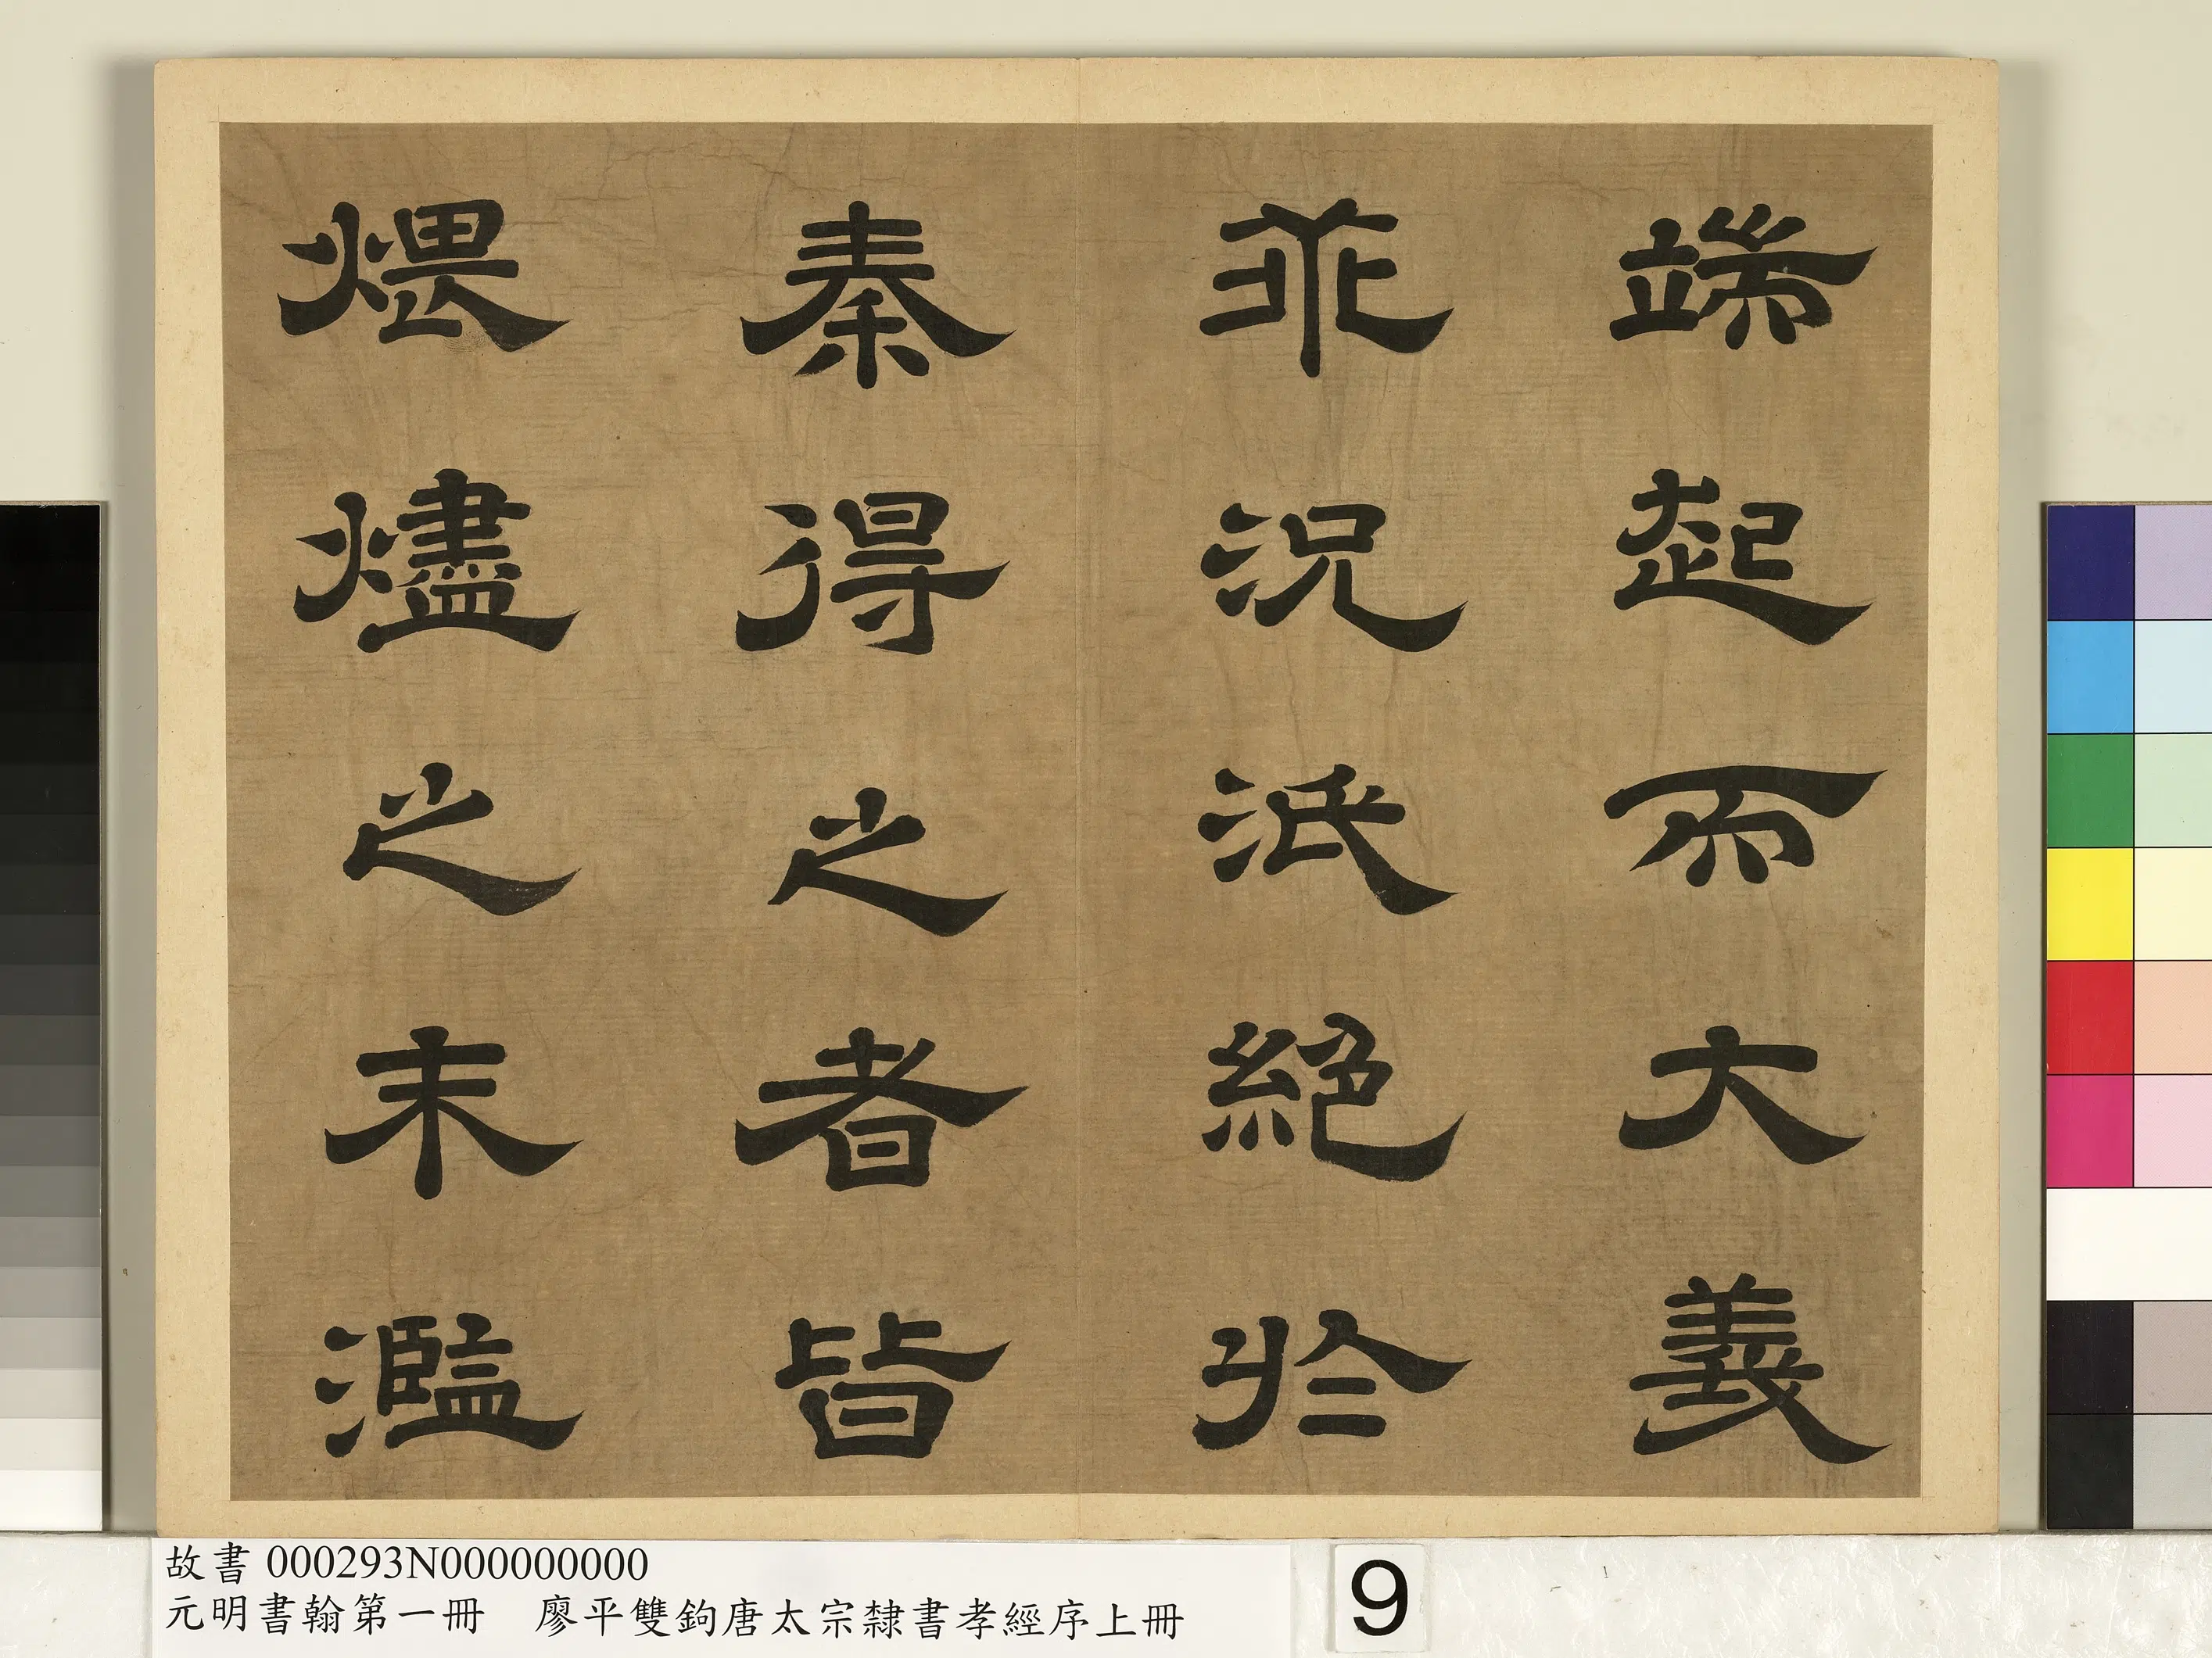 端起而大義
乖況泯絕於
秦得之者皆
煨燼之末濫
故書 000293N000000000
元明書翰第一冊 廖平雙鉤唐太宗隸書孝經序上冊
9